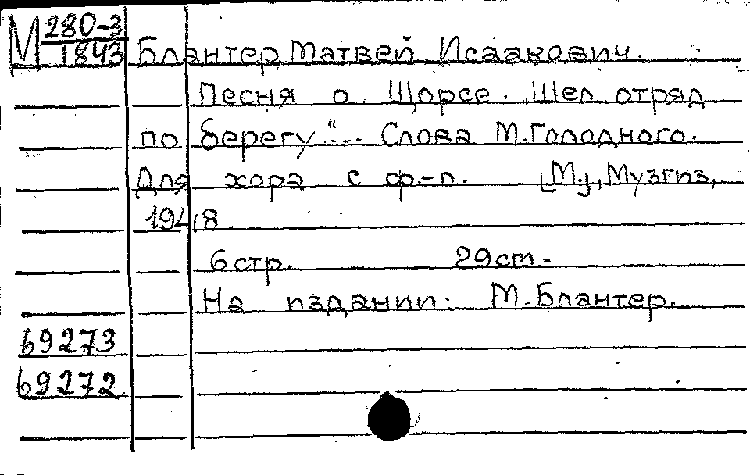 М 280-3
1843
Блантер Матвей Исаакович.
Песня о Щорсе. Шел отряд
по берегу"... Слова М.Голодного.
Для хора с ф.-п. [М.], Музгиз,
1948
6 стр. 29 cm.
На издании: М.Блантер.
69273
69272